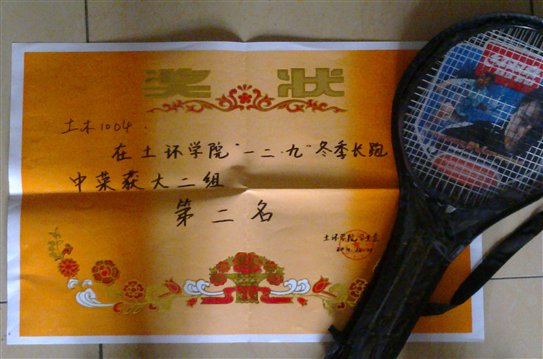 奖状
土木1004.
在土环学院"一二·九"冬季长跑
中荣获大二组
第二名
土环学院学生会